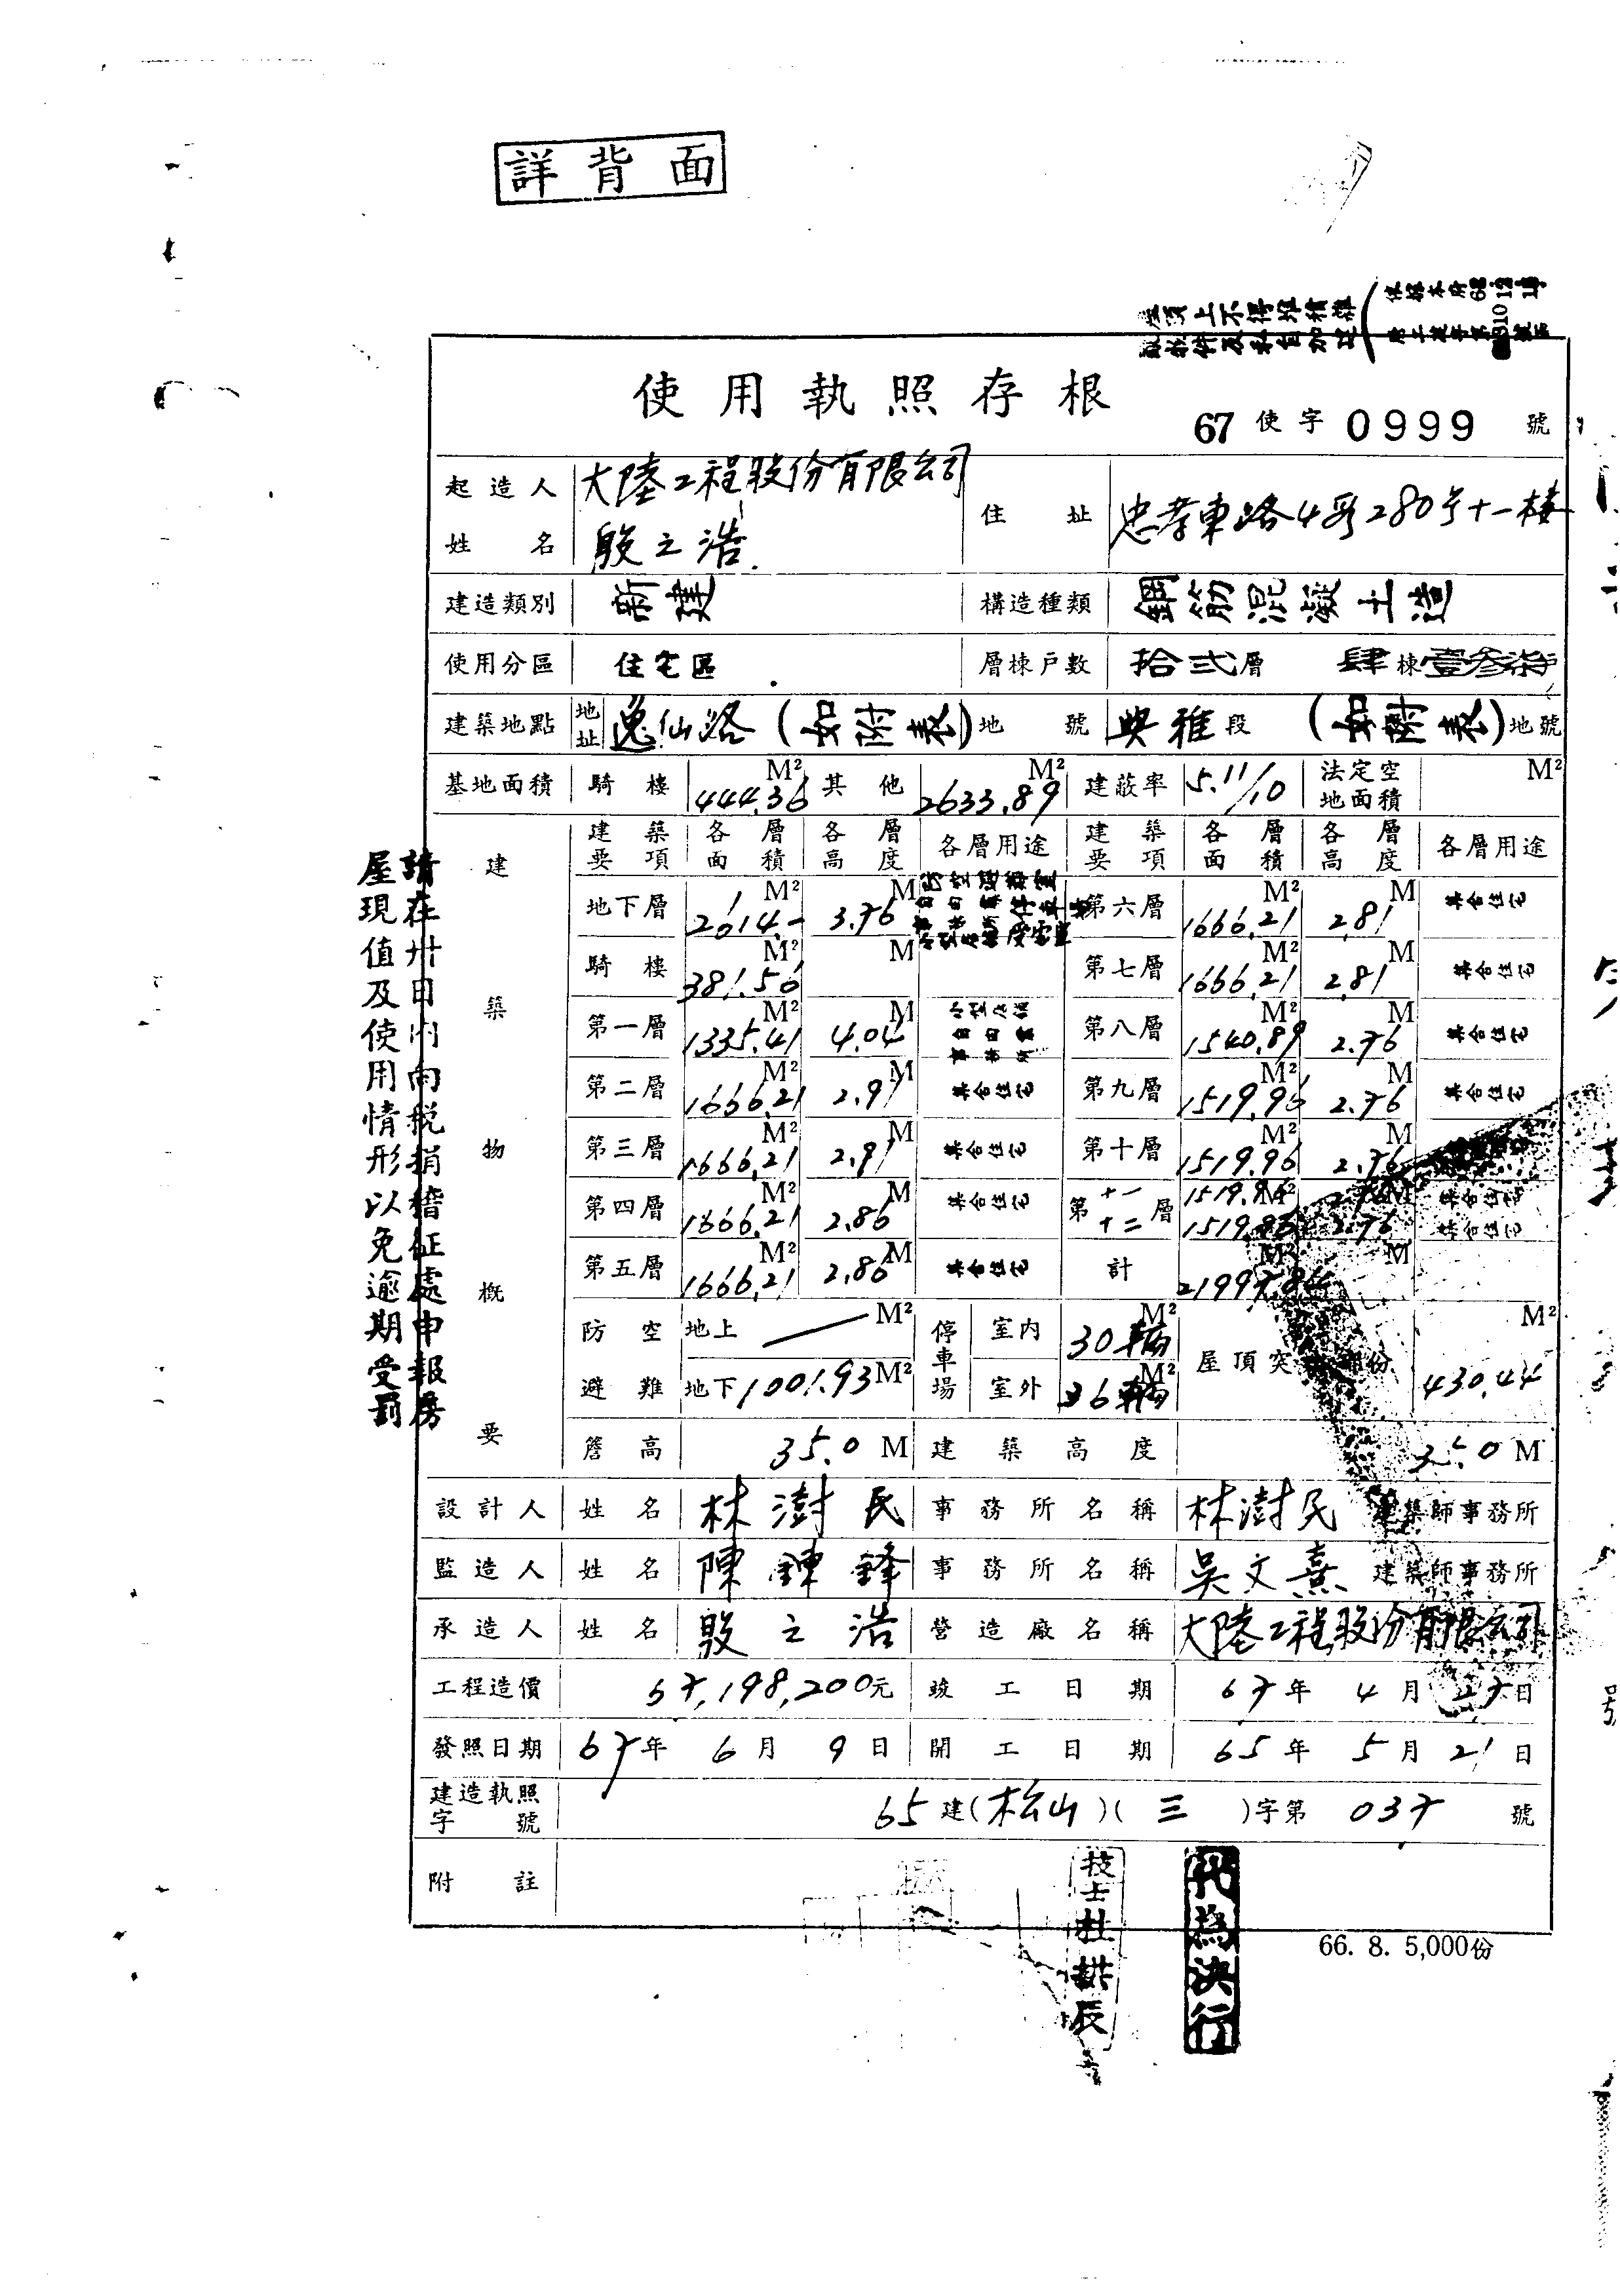 詳背面
使用執照存根
67 使字 0999 號
起造人姓名 大陸工程股份有限公司 殷之浩 住址 忠孝東路4段280号十一楼
建造類別 新建 構造種類 鋼筋混凝土造
使用分區 住宅區 層棟戶數 拾弍層 肆棟壹叁柒戶
建築地點 地址 逸仙路(如附表) 地號 興雅段 (如附表)地號
基地面積 騎樓 444.36 M² 其他 2633.89 M² 建蔽率 5.11/10 法定空地面積 M²
建築概要 建築物 要項 各層面積 各層高度 各層用途 建築要項 各層面積 各層高度 各層用途
地下層 2014.- M² 3.76 M 第六層 1666.21 M² 2.81 M 集合住宅
騎樓 381.56 M² M 第七層 1666.21 M² 2.81 M 集合住宅
第一層 1335.41 M² 4.04 M 第八層 1540.89 M² 2.76 M 集合住宅
第二層 1666.21 M² 2.91 M 集合住宅 第九層 1519.96 M² 2.76 M 集合住宅
第三層 1666.21 M² 2.91 M 集合住宅 第十層 1519.96 M² 2.76 M 集合住宅
第四層 1666.21 M² 2.86 M 集合住宅 第十一十二層 1519.96 M² 2.76 M 集合住宅
集合住宅
第五層 1666.21 M² 2.86 M 集合住宅 計 M² M
防空避難 地上 — M² 停車場 室內 30輛 M² 屋頂突 部份 430.44 M²
地下 1001.93 M² 室外 36輛 M²
簷高 35.0 M 建築高度 35.0 M
設計人 姓名 林澍民 事務所名稱 林澍民 建築師事務所
監造人 姓名 陳鍊鋒 事務所名稱 吳文熹 建築師事務所
承造人 姓名 殷之浩 營造廠名稱 大陸工程股份有限公司
工程造價 57,198,200元 竣工日期 67年 4月 27日
發照日期 67年 6月 9日 開工日期 65年 5月 21日
建造執照字號 65建(松山)(三)字第 037 號
附註
請在卅日內向稅捐稽征處申報房
屋現值及使用情形以免逾期受罰
技士杜
為決行
66. 8. 5,000份